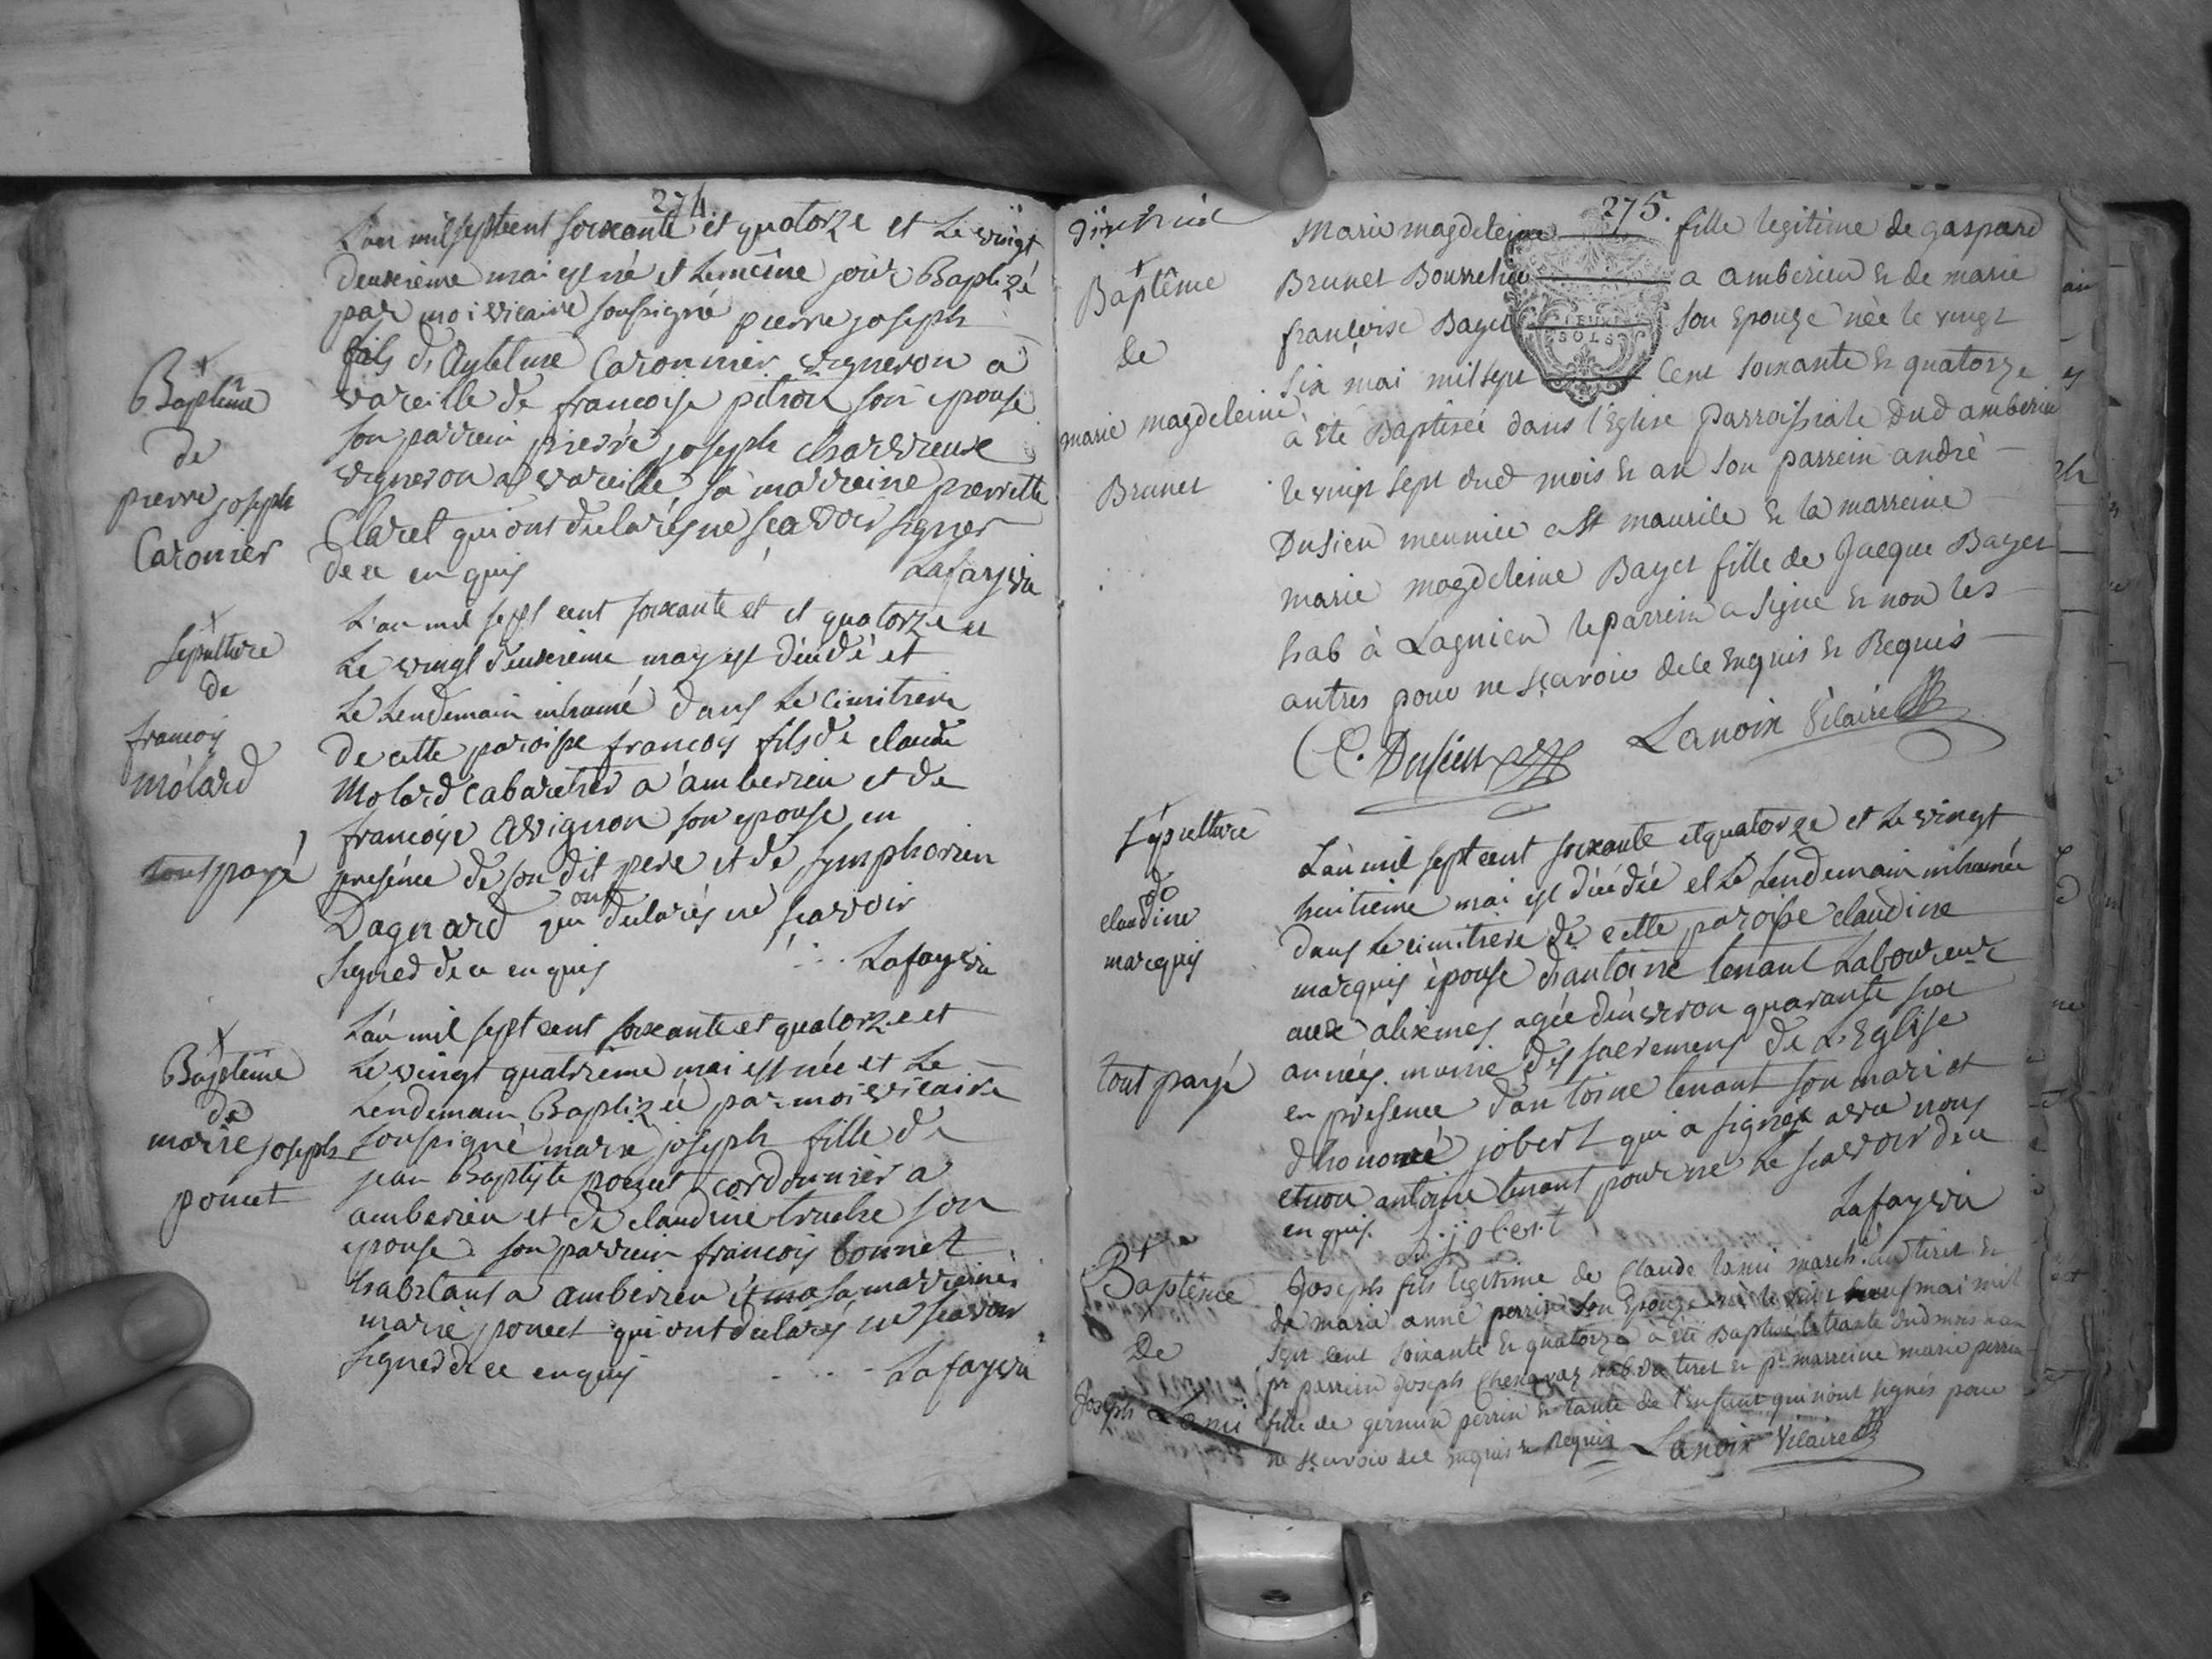 274
L'an mil sept cent soixante et quatorze et Le vingt
deuxieme mai est né et Le même jour Baptizé
par moi vicaire soussigné pierre joseph
fils d' Caronnier vigneron a
vareille de francoise son epouse
son parrein pierre joseph
vigneron a vareille sa marreine pierrette
Claret qui ont declarés ne scavoir signer
de ce enquis Lafay
Baptême
de
pierre joseph
Caronier
L'an mil sept cent soixante et et quatorze et
Le vingt deuxieme may est décédé et
Le Lendemain inhumé dans Le cimitiere
de cette paroisse francois fils de claude
Molard cabaretier a amberieu et de
francoise avignon son epouse en
presence de son dit pere et de symphorien
Dagnard qui ont declarés ne scavoir
signer de ce enquis Lafay
sepulture
de
francois
mólard
tout payé
L'an mil sept cent soixante et quatorze et
Le vingt quatrieme mai est née et Le
Lendemain Baptizée par moi vicaire
soussigné marie joseph fille de
jean Baptiste poncet cordonnier a
amberieu et de claudine truche son
epouse son parrein francois bonnet
habitant a amberieu et sa marreine
marie poncet qui ont declarés ne scavoir
signer de ce enquis Lafay
Baptême
de
marie joseph
poncet
275.
Marie magdeleine fille legitime de gaspard
Brunet Bourrelier a amberieu & de marie
françoise Bayet son Epouze née le vingt
six mai mil sept Cent soixante & quatorze
à eté Baptisée dans l'Eglise parroissiale dud amberieu
le vingt sept dud mois & an son parrein andré
Dusieu meunier a St maurile & la marreine
marie magdeleine Bayet fille de Jacque Bayet
hab à Lagnieu le parrein a signé & non les
autres pour ne sçavoir de ce Enquis & Requis
C. Dusieu Lanoix Vicaire
DEUX
SOLS
Baptême
de
marie magdeleine
Brunet
L'an mil sept cent soixante et quatorze et Le vingt
huitieme mai est décédée et Le Lendemain inhumée
dans Le cimitiere de cette paroisse claudine
marquis épouse d'antoine tenant Laboureur
aux alixmes agée d'environ quarante six
années munie des sacremens de L'Eglise
en presence d'antoine tenant son mari et
d'honoré jobert qui a signé avec nous
et non antoine tenant pour ne Le scavoir de ce
enquis. h. jobert Lafay
sépulture
de
claudine
marquis
tout payé
Joseph fils legitime de Claude lami march. au tiret &
de marie anne perrin son Epouze né le vint neuf mai mil
sept cent soixante & quatorze à été Baptisé le trante dud mois & an
pr parrein Joseph Chenavaz hab. du tiret & pr marreine marie perrin
fille de germain perrin & tante de l'Enfant qui n'ont signés pour
ne sçavoir de ce enquis & Requis Lanoix Vicaire
Baptême
De
Joseph Lami